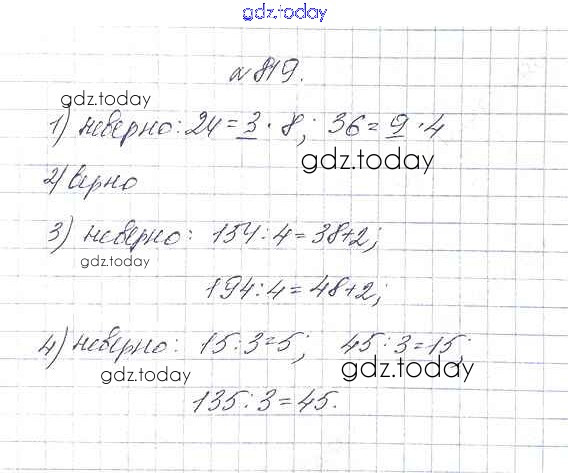 gdz.today
№819.
gdz.today
1) неверно: 24 = 3 · 8; 36 = 9 · 4
gdz.today
2) верно
3) неверно: 154 : 4 = 38+2;
gdz.today
194 : 4 = 48+2;
4) неверно: 15 : 3 = 5; 45 : 3 = 15;
gdz.today gdz.today
135 : 3 = 45.